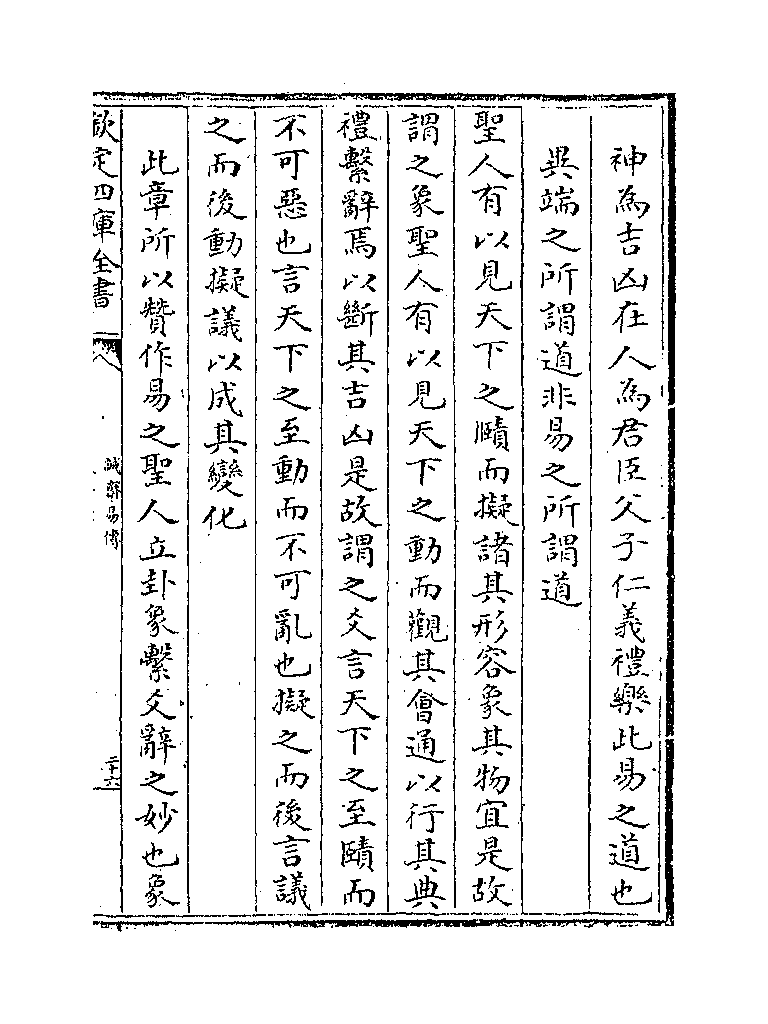 神為吉凶在人為君臣父子仁義禮樂此易之道也
異端之所謂道非易之所謂道
聖人有以見天下之賾而擬諸其形容象其物宜是故
謂之象聖人有以見天下之動而觀其會通以行其典
禮繫辭焉以斷其吉凶是故謂之爻言天下之至賾而
不可惡也言天下之至動而不可亂也擬之而後言議
之而後動擬議以成其變化
此章所以贊作易之聖人立卦象繫爻辭之妙也象
欽定四庫全書
誠齋易傳
二十六